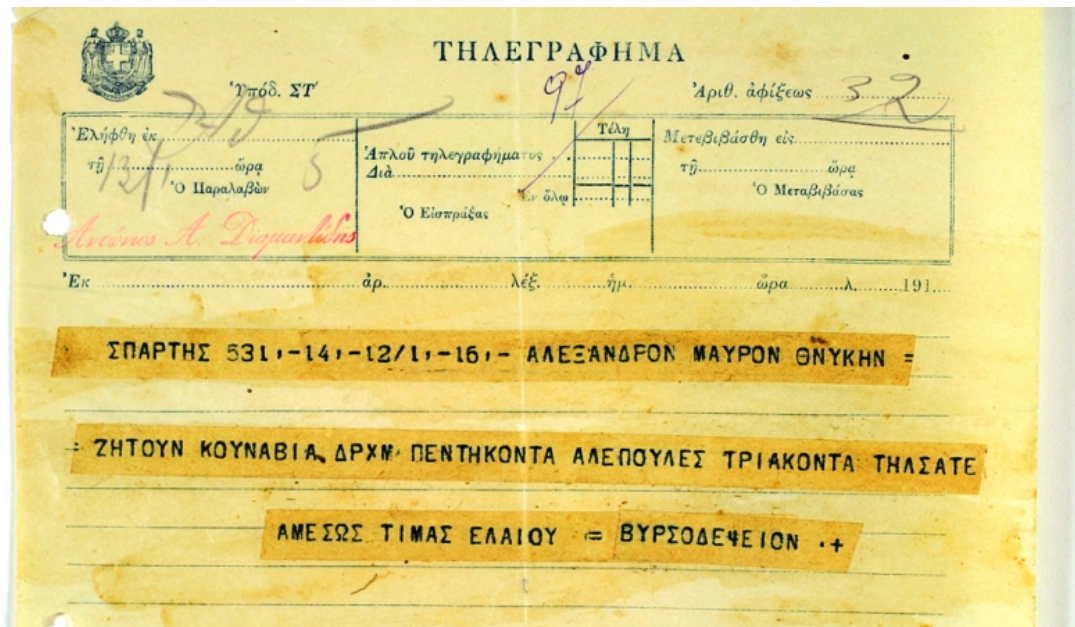 ΤΗΛΕΓΡΑΦΗΜΑ
Ὑπόδ. ΣΤ′
97
Ἀριθ. ἀφίξεως 32
Ἐλήφθη ἐκ
τῇ 12/1 ὥρᾳ 5
Ὁ Παραλαβὼν
Ἀντώνιος Α. Διαμαντίδης
Τέλη
Ἁπλοῦ τηλεγραφήματος
Διὰ
Ἐν ὅλῳ
Ὁ Εἰσπράξας
Μετεβιβάσθη εἰς
τῇ ὥρᾳ
Ὁ Μεταβιβάσας
Ἐκ ἀρ. λέξ. ἡμ. ὥρα λ. 191
ΣΠΑΡΤΗΣ 531,-14,-12/1,-16,- ΑΛΕΞΑΝΔΡΟΝ ΜΑΥΡΟΝ ΘΝΥΚΗΝ =
= ΖΗΤΟΥΝ ΚΟΥΝΑΒΙΑ ΔΡΧΜ ΠΕΝΤΗΚΟΝΤΑ ΑΛΕΠΟΥΛΕΣ ΤΡΙΑΚΟΝΤΑ ΤΗΛΣΑΤΕ
ΑΜΕΣΩΣ ΤΙΜΑΣ ΕΛΑΙΟΥ = ΒΥΡΣΟΔΕΨΕΙΟΝ .+